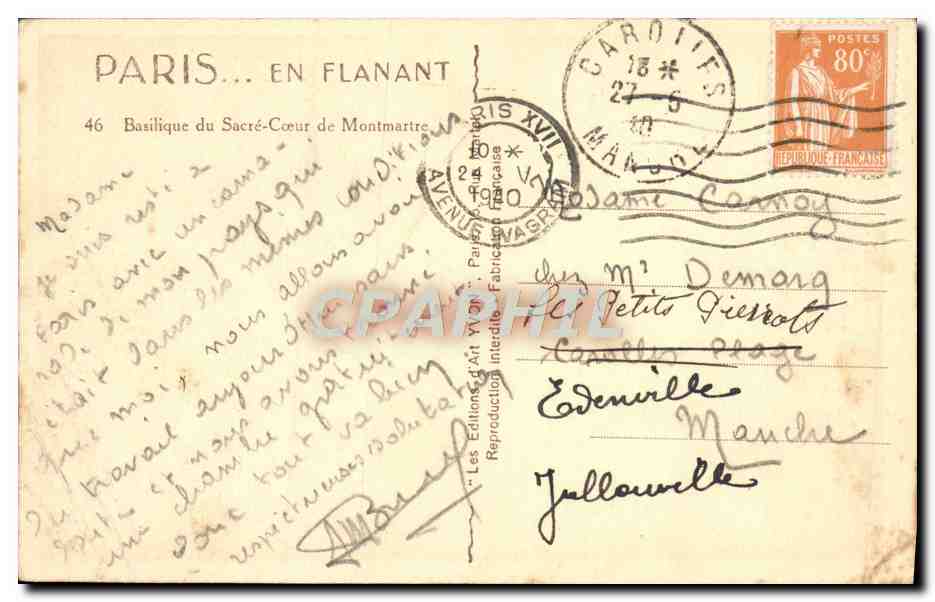 PARIS... EN FLANANT
46 Basilique du Sacré-Cœur de Montmartre
Madame
je suis resté à
Paris avec un cama-
rade de mon pays qui
était dans les mêmes conditions
que moi. nous allons avoir
du travail aujourd'hui sans
doute et nous avons
une chambre gratuite
donc tout va bien
respectueuses salutations
"Les Editions d'Art YVON", Paris
Reproduction Interdite Fabrication Française
PARIS XVII
10 *
24 V
1940
AVENUE WAGRAM
CAROLLES
18 *
27 - 5
40
MANCHE
POSTES
80c
REPUBLIQUE-FRANÇAISE
Madame Carnoy
chez Mr Demarq
Les Petits Pierrots
Carolles Plage
Edenville
Manche
Jullouville
CPAPHIL